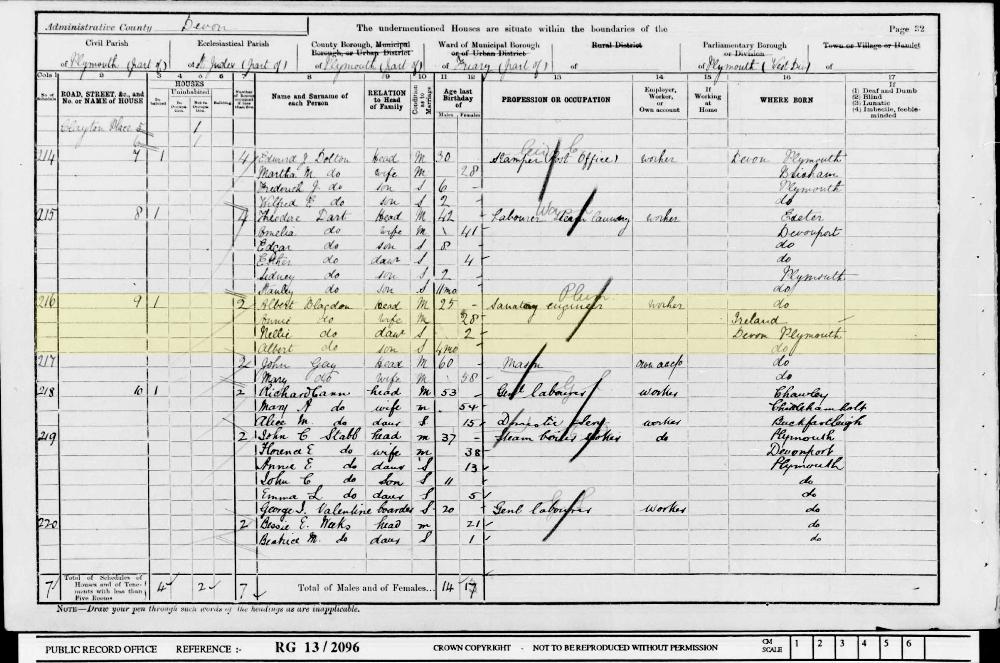 Administrative County Devon
The undermentioned Houses are situate within the boundaries of the
Page 32
Civil Parish
of Plymouth (part of)
Ecclesiastical Parish
of St Judes (part of)
County Borough, Municipal Borough, or Urban District
of Plymouth (part of)
Ward of Municipal Borough or of Urban District
of Friary (part of)
Rural District
of
Parliamentary Borough or Division
of Plymouth
Town or Village or Hamlet
of
Cols 1 2 3 4 5 6 7 8 9 10 11 12 13 14 15 16 17
No. of Schedule
ROAD, STREET, &c., and No. or NAME of HOUSE
HOUSES
Inhabited
Uninhabited
In Occupation
Not in Occupation
Building
Number of Rooms occupied if less than five
Name and Surname of each Person
RELATION to Head of Family
Condition as to Marriage
Age last Birthday of
Males Females
PROFESSION OR OCCUPATION
Employer, Worker, or Own account
If Working at Home
WHERE BORN
If
(1) Deaf and Dumb
(2) Blind
(3) Lunatic
(4) Imbecile, feeble-minded
Clayton Place 5 1
6 1
214 7 1 4 Edward J Dolton Head M 30 Stamper (Post Office) worker Devon Plymouth
Martha M do wife M 28 Brixham
Frederick J. do son S 6 Plymouth
Wilfred E do son S 2 do
215 8 1 4 Theodore Dart Head M 42 Labourer Steam laundry worker Exeter
Amelia do wife M 41 Devonport
Edgar do son S 8 do
Esther do daur S 4 do
Sidney do son S 2 Plymouth
Stanley do son S 11mo do
216 9 1 2 Albert Blagdon Head M 25 Sanatary engineer Plum. worker do
Annie do wife M 28 Ireland
Nellie do daur S 2 Devon Plymouth
Albert do son S 4mo do
217 2 John Gay Head M 60 Mason own acc do
Mary do wife M 58 do
218 10 1 2 Richard Cann head M 53 Genl labourer G L worker Chawley
Mary A do wife m 54 Chittlehamholt
Alice M. do daur S 15 Domestic Serv worker Buckfastleigh
219 2 John C Slabb head m 37 Steam boiler stoker do Plymouth
Florence E do wife m 38 Devonport
Annie E do daur S 13 Plymouth
John C do Son S 11 do
Emma L do daur S 5 do
George J. Valentine boarder S 20 Genl labourer worker do
220 2 Bessie E. Neeks head m 21 do
Beatrice M. do daur S 1 do
7 Total of Schedules of Houses and of Tenements with less than Five Rooms 4 2 7 Total of Males and of Females... 14 17
NOTE—Draw your pen through such words of the headings as are inapplicable.
PUBLIC RECORD OFFICE REFERENCE :- RG 13/2096 CROWN COPYRIGHT - NOT TO BE REPRODUCED WITHOUT PERMISSION CM SCALE 1 2 3 4 5 6